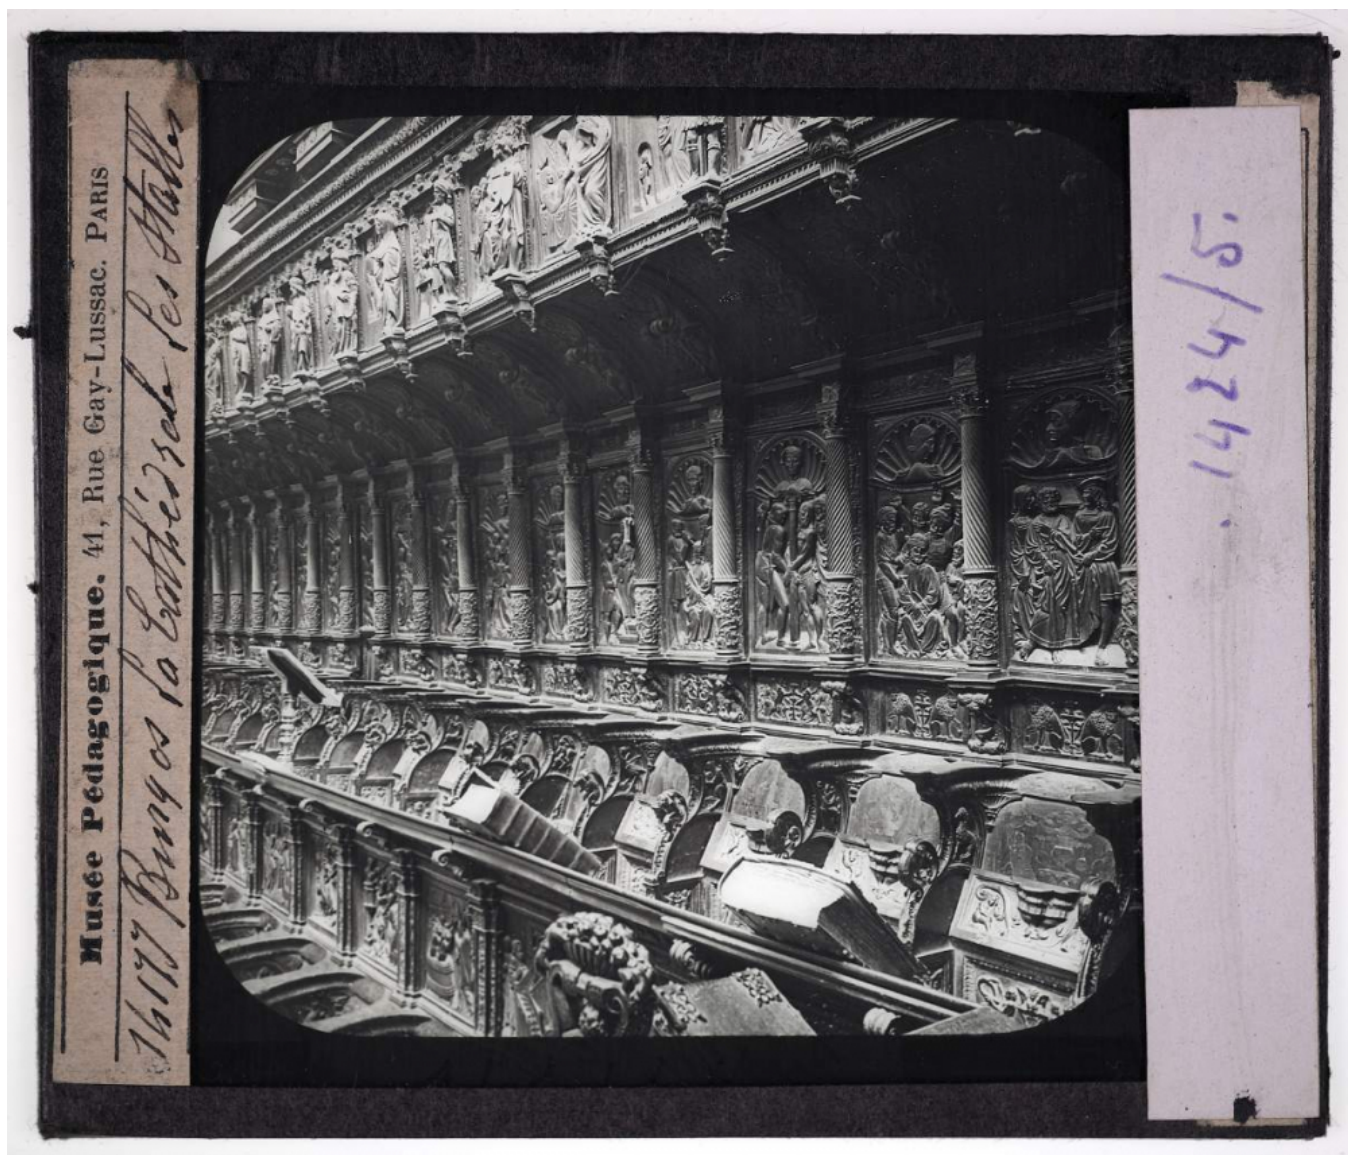 Musée Pédagogique. 41, Rue Gay-Lussac. PARIS
Burgos La Cathédrale Les Stalles
1424/5.